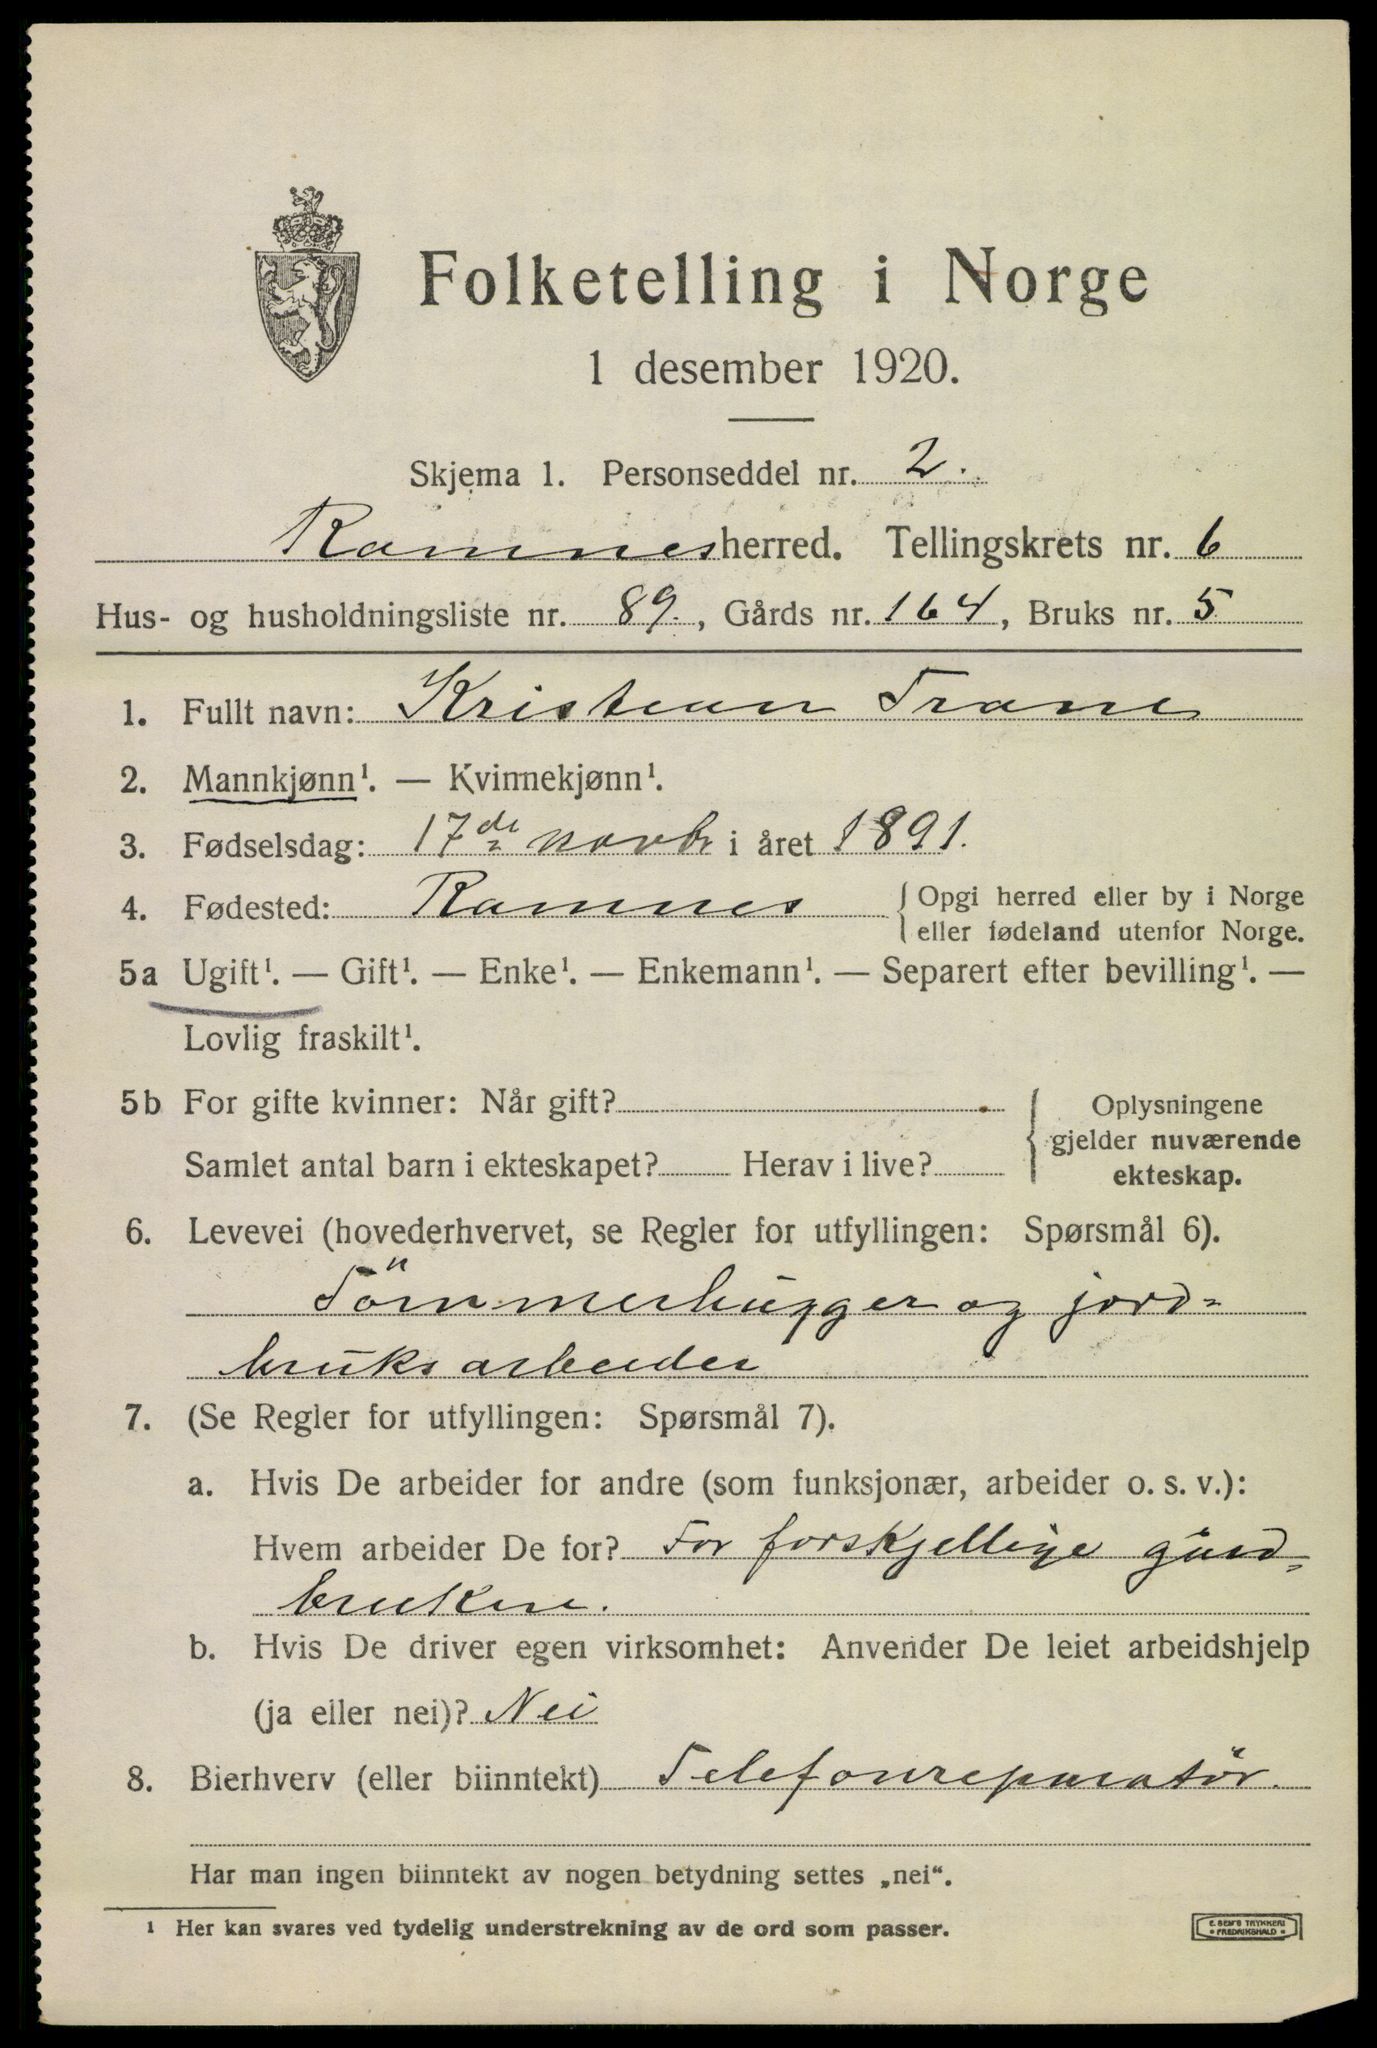 Folketelling i Norge
1 desember 1920.
Skjema 1. Personseddel nr. 2.
Ramnes herred. Tellingskrets nr. 6
Hus- og husholdningsliste nr. 89., Gårds nr. 164, Bruks nr. 5
1. Fullt navn: Kristian Trane
2. Mannkjønn¹. — Kvinnekjønn¹.
3. Fødselsdag: 17de novbr i året 1891.
4. Fødested: Ramnes { Opgi herred eller by i Norge
eller fødeland utenfor Norge.
5a Ugift¹. — Gift¹. — Enke¹. — Enkemann¹. — Separert efter bevilling¹. —
Lovlig fraskilt¹.
5b For gifte kvinner: Når gift?
Samlet antal barn i ekteskapet? Herav i live?
{ Oplysningene
gjelder nuværende
ekteskap.
6. Levevei (hovederhvervet, se Regler for utfyllingen: Spørsmål 6).
Tömmerhugger og jord-
bruksarbeider
7. (Se Regler for utfyllingen: Spørsmål 7).
a. Hvis De arbeider for andre (som funksjonær, arbeider o. s. v.):
Hvem arbeider De for? For forskjellige gård-
brukere.
b. Hvis De driver egen virksomhet: Anvender De leiet arbeidshjelp
(ja eller nei)? Nei
8. Bierhverv (eller biinntekt) Telefonreparatör.
Har man ingen biinntekt av nogen betydning settes „nei“.
¹ Her kan svares ved tydelig understrekning av de ord som passer.
E. SEM'S TRYKKERI
* FREDRIKSHALD *